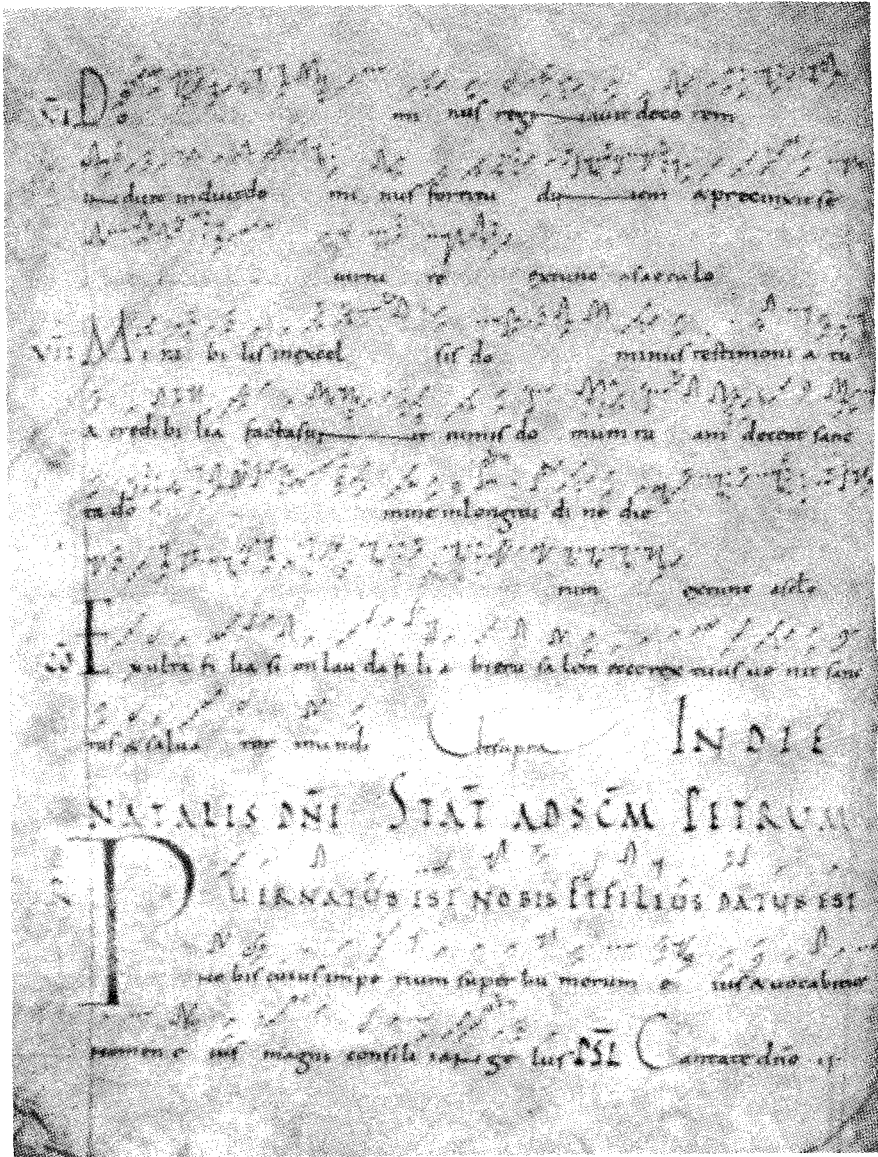 Do mi nus regnauit deco rem
in duit induit do mi nus fortitu di nem & precinxit se
uirtu te extunc asaeculo
Mi ra bi lis inexcel sis do minus testimoni a tu
a credi bi lia facta sunt nimis do mum tu am decent sanc
ta do mine inlongitu di ne die
rum extunc
Exulta fi lia si on lau da fi li a hieru sa lem ecce rex tuus ue nit sanc
tus & salua tor mundi utsupra IN DIE
NATALIS DN̄I STAT̄ AD SC̄M PETRUM
PUER NATUS EST NOBIS ET FILIUS DATUS EST
no bis cuius impe rium super hu merum e ius & uocabitur
nomen e ius magni consili i an ge lus PSL Cantate dn̄o